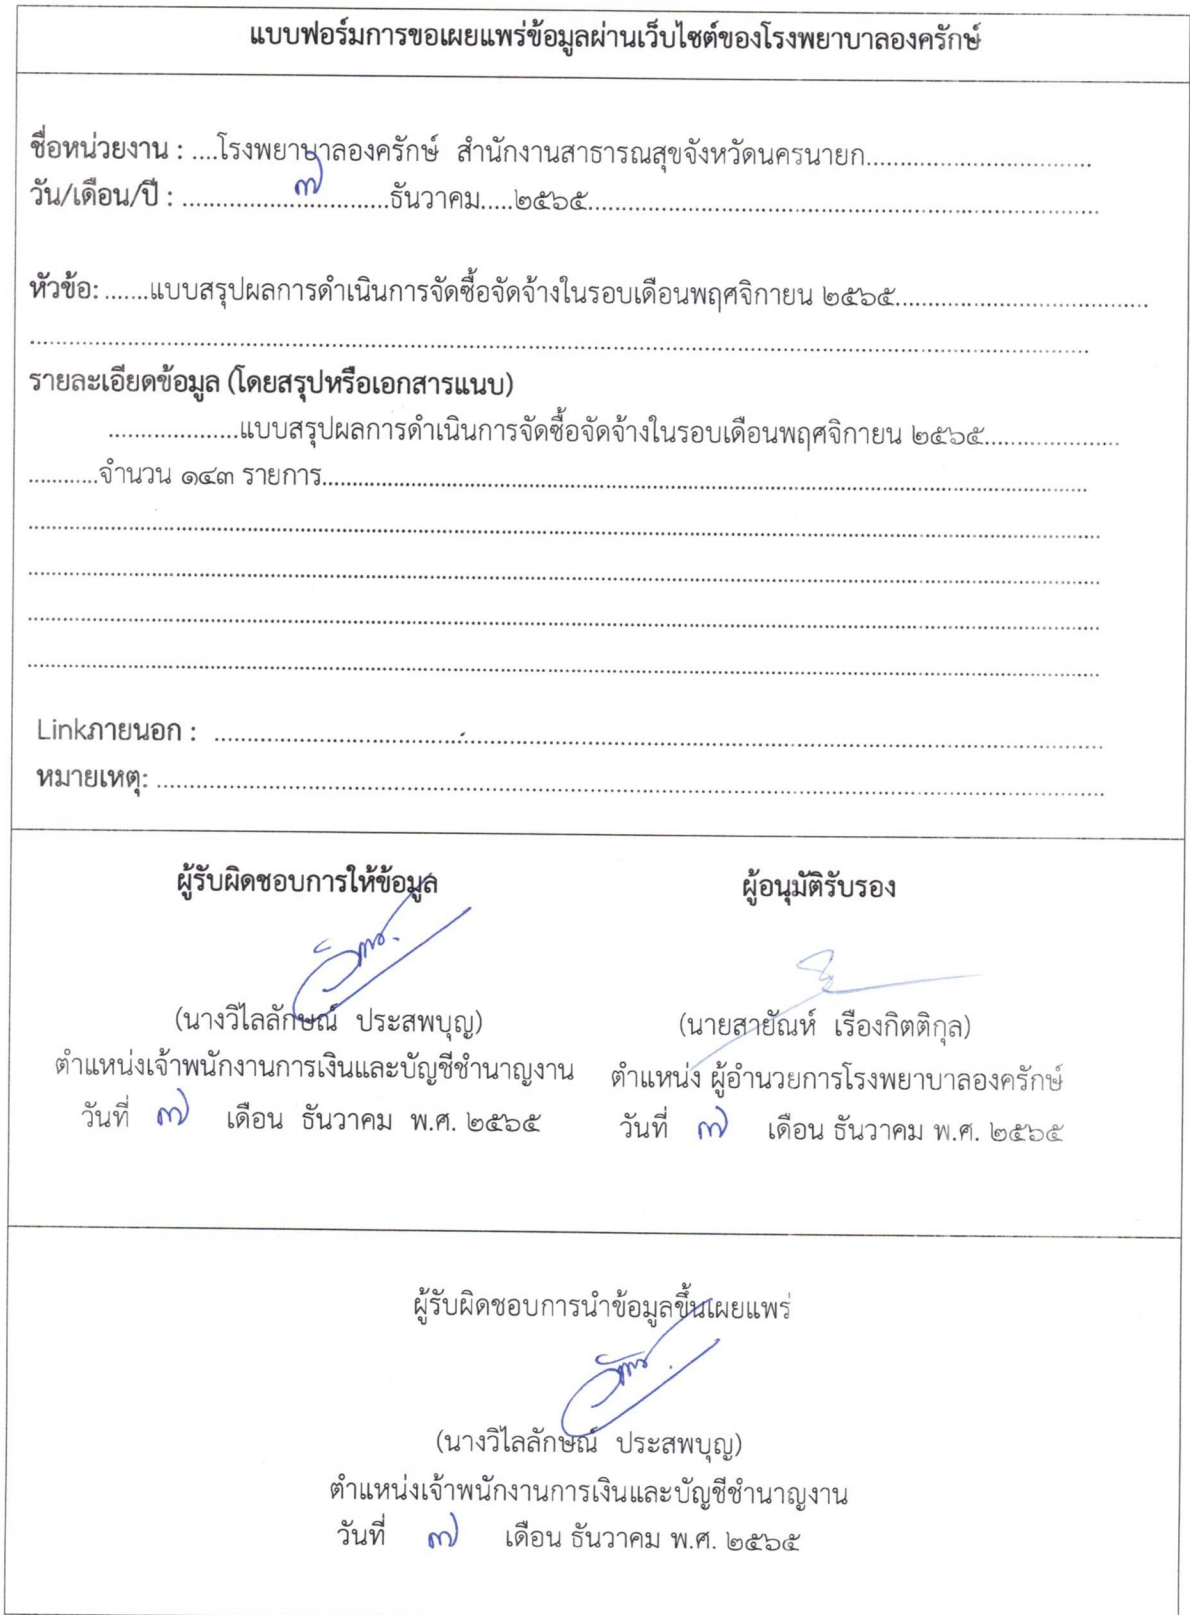 แบบฟอร์มการขอเผยแพร่ข้อมูลผ่านเว็บไซต์ของโรงพยาบาลองครักษ์
ชื่อหน่วยงาน : ....โรงพยาบาลองครักษ์ สำนักงานสาธารณสุขจังหวัดนครนายก..................................
วัน/เดือน/ปี : ................๗..............ธันวาคม.....๒๕๖๕...........................................................................
หัวข้อ: .......แบบสรุปผลการดำเนินการจัดซื้อจัดจ้างในรอบเดือนพฤศจิกายน ๒๕๖๕......................................
รายละเอียดข้อมูล (โดยสรุปหรือเอกสารแนบ)
....................แบบสรุปผลการดำเนินการจัดซื้อจัดจ้างในรอบเดือนพฤศจิกายน ๒๕๖๕....................
............จำนวน ๑๔๓ รายการ....................................................................................................................
Linkภายนอก : ....................................................................................................................................
หมายเหตุ: .............................................................................................................................................
ผู้รับผิดชอบการให้ข้อมูล ผู้อนุมัติรับรอง
(นางวิไลลักษณ์ ประสพบุญ) (นายสายัณห์ เรืองกิตติกุล)
ตำแหน่งเจ้าพนักงานการเงินและบัญชีชำนาญงาน ตำแหน่ง ผู้อำนวยการโรงพยาบาลองครักษ์
วันที่ ๗ เดือน ธันวาคม พ.ศ. ๒๕๖๕ วันที่ ๗ เดือน ธันวาคม พ.ศ. ๒๕๖๕
ผู้รับผิดชอบการนำข้อมูลขึ้นเผยแพร่
(นางวิไลลักษณ์ ประสพบุญ)
ตำแหน่งเจ้าพนักงานการเงินและบัญชีชำนาญงาน
วันที่ ๗ เดือน ธันวาคม พ.ศ. ๒๕๖๕